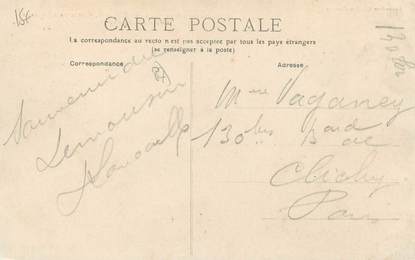 15€
CARTE POSTALE
La correspondance au recto n'est pas acceptée par tous les pays étrangers
(se renseigner à la poste)
Correspondance
Adresse
Souvenir du
Limousin
Mme Vaganey
130 bis Bard de
Clichy
Paris